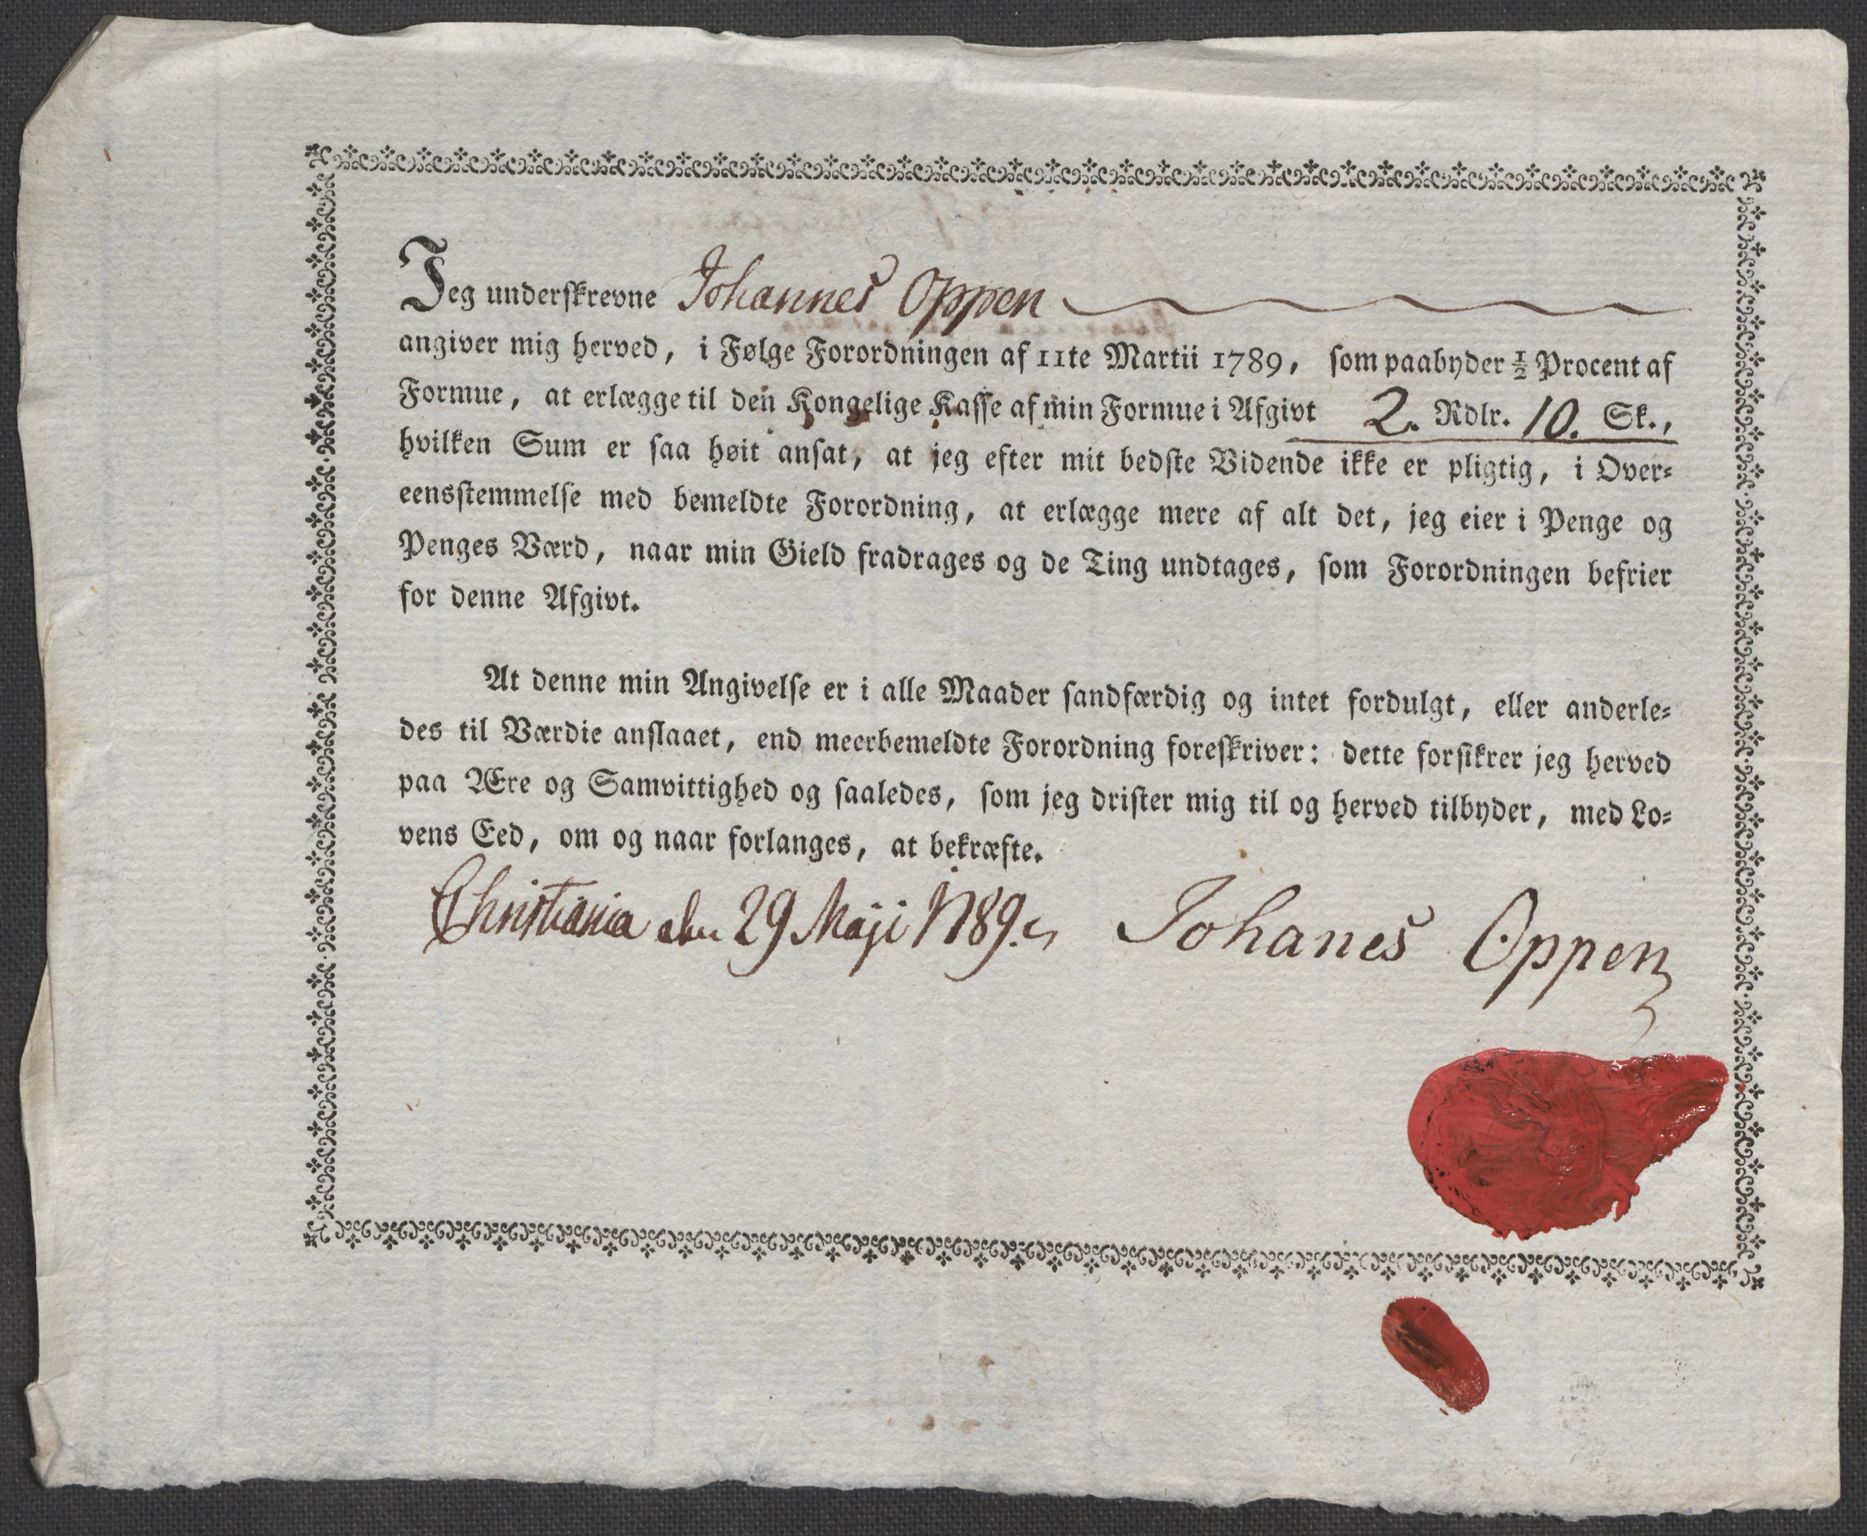 Jeg underskrevne Johannes Oppen
angiver mig herved, i Følge Forordningen af 11te Martii 1789, som paabyder ½ Procent af
Formue, at erlægge til den Kongelige Kasse af min Formue i Afgivt 2. Rdlr. 10. Sk.,
hvilken Sum er saa høit ansat, at jeg efter mit bedste Vidende ikke er pligtig, i Over-
eensstemmelse med bemeldte Forordning, at erlægge mere af alt det, jeg eier i Penge og
Penges Værd, naar min Gield fradrages og de Ting undtages, som Forordningen befrier
for denne Afgivt.
At denne min Angivelse er i alle Maader sandfærdig og intet fordulgt, eller anderle-
des til Værdie anslaaet, end meerbemeldte Forordning foreskriver: dette forsikrer jeg herved
paa Ære og Samvittighed og saaledes, som jeg drister mig til og herved tilbyder, med Lo-
vens Eed, om og naar forlanges, at bekræfte.
Christiania den 29 Maji 1789. Johanes Oppen